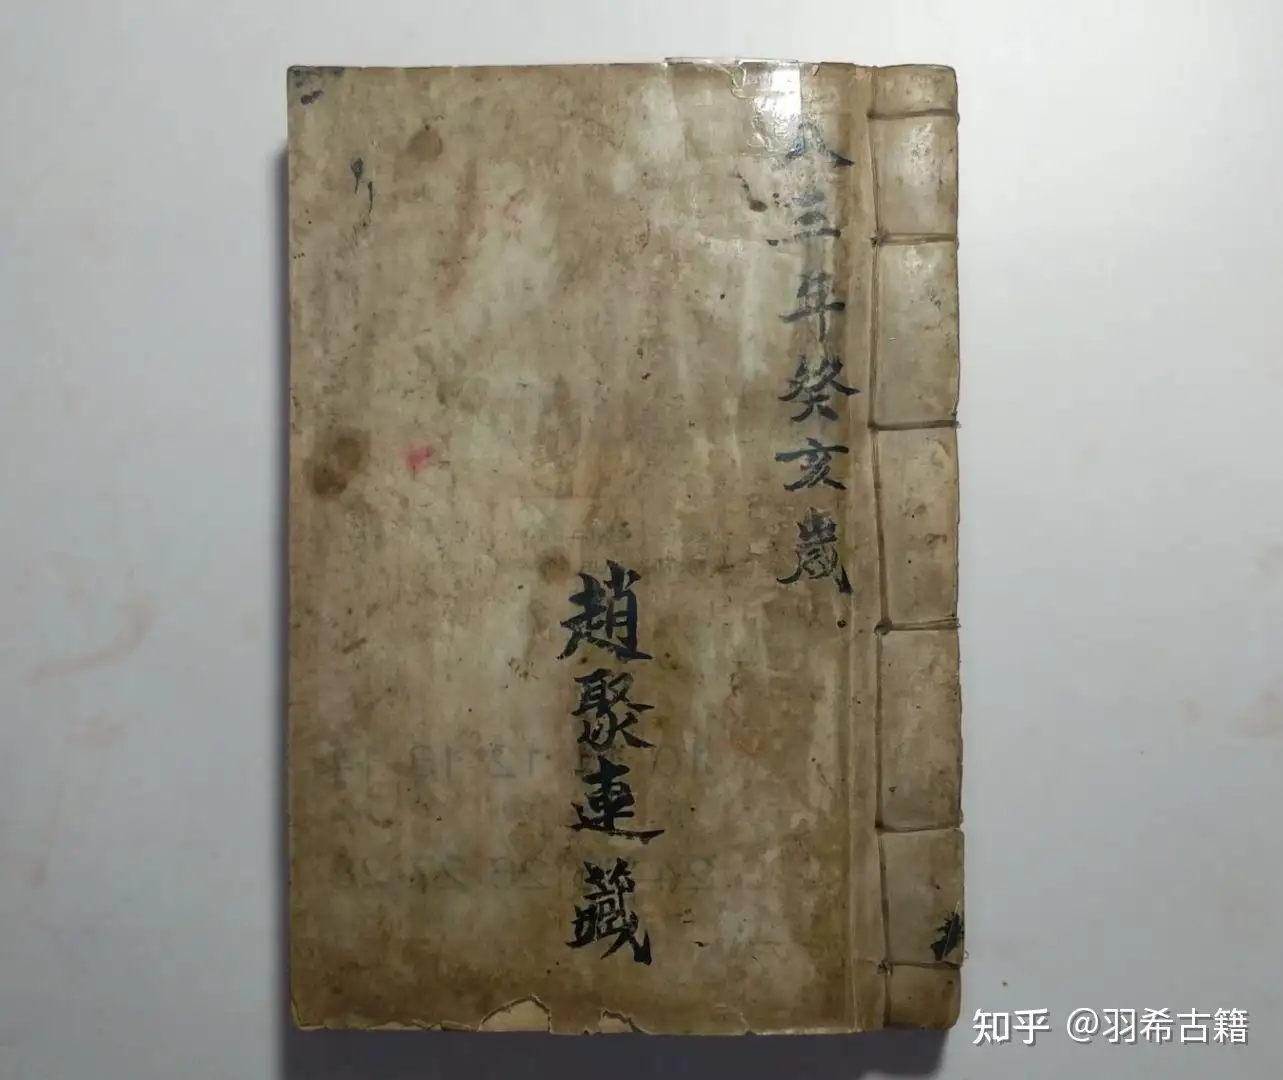 八三年癸亥歲
趙聚連藏
知乎 @羽希古籍